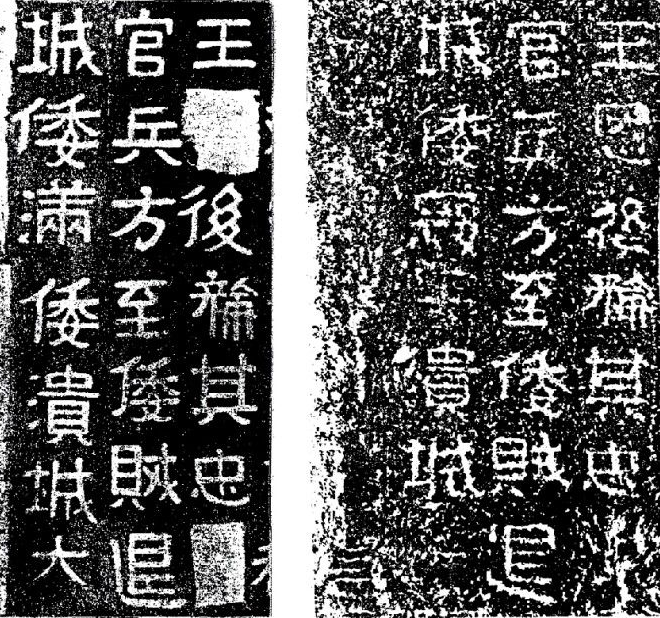 王後稐其忠
官兵方至倭賊退
城倭滿倭潰城大
王恩後稐其忠
官兵方至倭賊退
城倭潰城